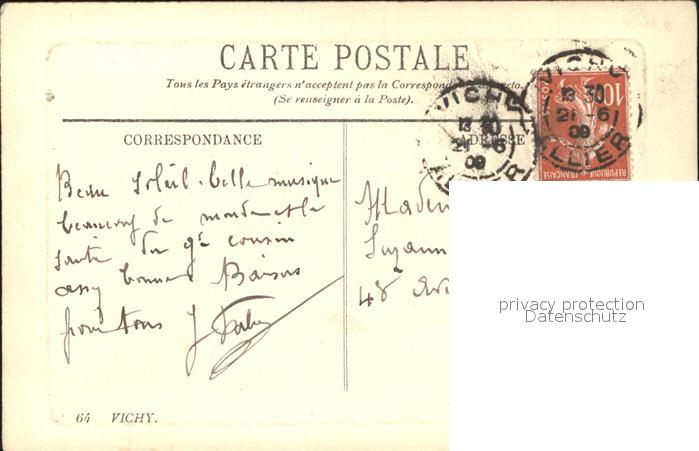 CARTE POSTALE
Tous les Pays étrangers n'acceptent pas la Correspon recto.
(Se renseigner à la Poste).
CORRESPONDANCE
ADRESSE
VICHY
13 30
21 - 6
09
ALLIER
VICHY
13 30
21 - 6
09
ALLIER
10
REPUBLIQUE FRANÇAISE
Beau soleil. belle musique
beaucoup de monde et la
santé du gd cousin
assez bonne Baisers
pour tous J
Madem
Suzann
48 bis
privacy protection
Datenschutz
64 VICHY.